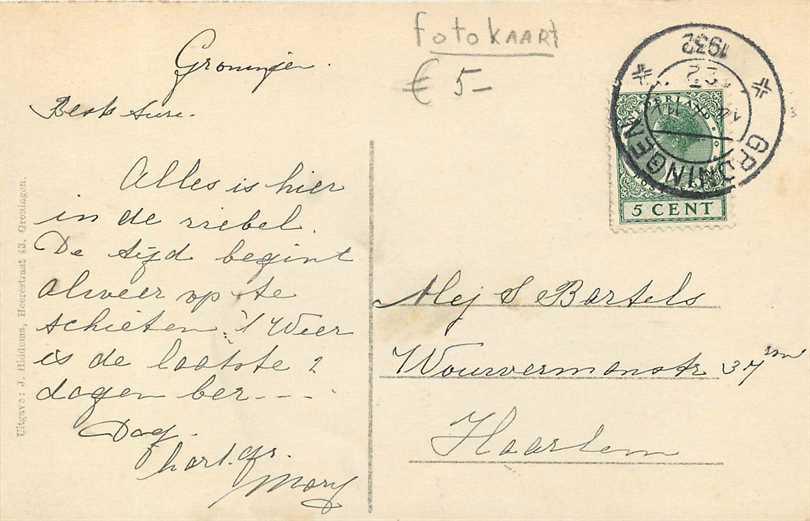 fotokaart
€ 5-
Groningen.
Beste Suse.
Alles is hier
in de riebel.
De tijd begint
alweer op te
schieten. 't Weer
is de laatste 2
dagen ber----
Dag.
hart. gr.
Mary
Uitgave: J. Hiddema, Heerestraat 43, Groningen.
GRONINGEN
1932
NEDERLAND
5 CENT
Mej S Bartels
Wouvermanstr 37 zw
Haarlem